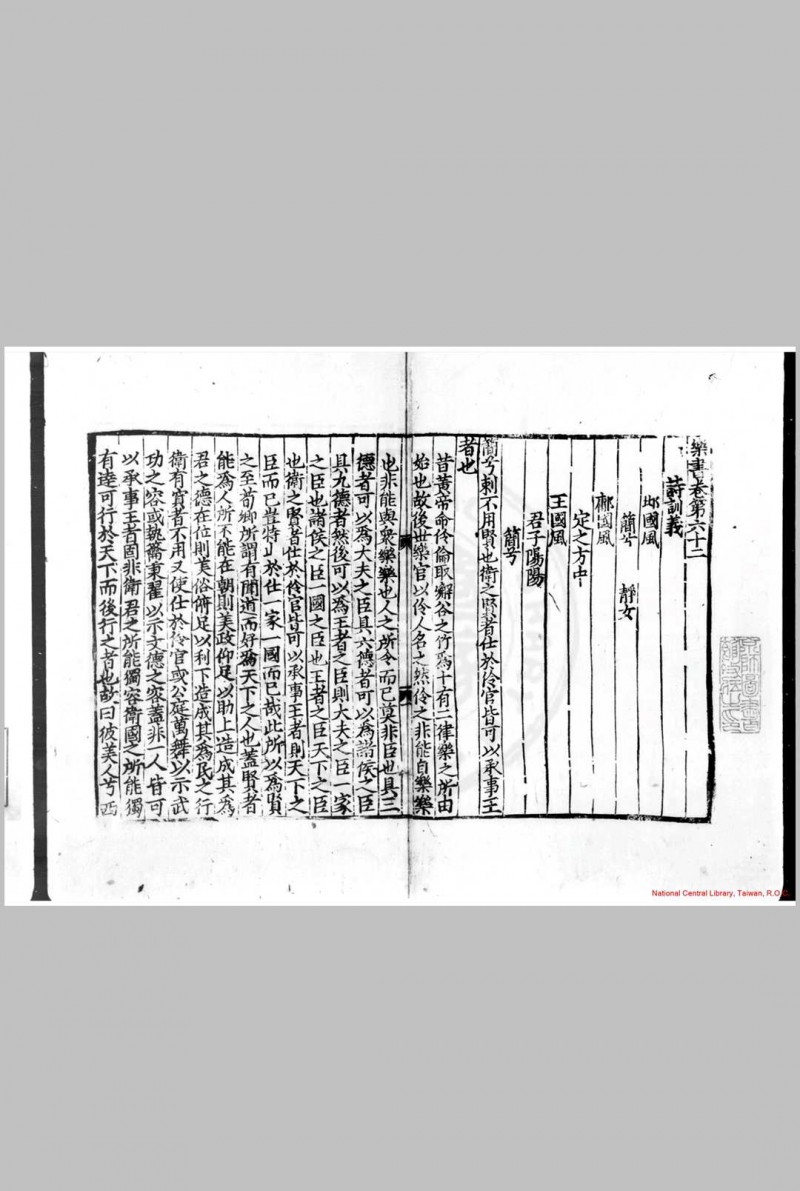 樂書卷第六十二
詩訓義
邶國風
簡兮　靜女
鄘國風
定之方中
王國風
君子陽陽
簡兮
簡兮刺不用賢也衛之賢者仕於伶官皆可以承事王
者也
昔黃帝命伶倫取嶰谷之竹爲十有二律樂之所由
始也故後世樂官以伶人名之然伶之非能自樂樂
也非能與衆樂樂也人之所令而已莫非臣也具三
德者可以為大夫之臣具六德者可以為諸侯之臣
具九德者然後可以為王者之臣則大夫之臣一家
之臣也諸侯之臣一國之臣也王者之臣天下之臣
也衛之賢者仕於伶官皆可以承事王者則天下之
臣而已豈特止於仕一家一國而已哉此所以為賢
之至荀卿所謂有聞道而好為天下之人也蓋賢者
能為人所不能在朝則美政仰足以助上造成其為
君之德在位則美俗俯足以利下造成其為民之行
衛有賢者不用又使仕於伶官或公庭萬舞以示武
功之容或執籥秉翟以示文德之容蓋非一人皆可
以承事王者固非衛君之所能獨容衛國之所能獨
有達可行於天下而後行之者也故曰彼美人兮西
National Central Library, Taiwan, R.O.C.